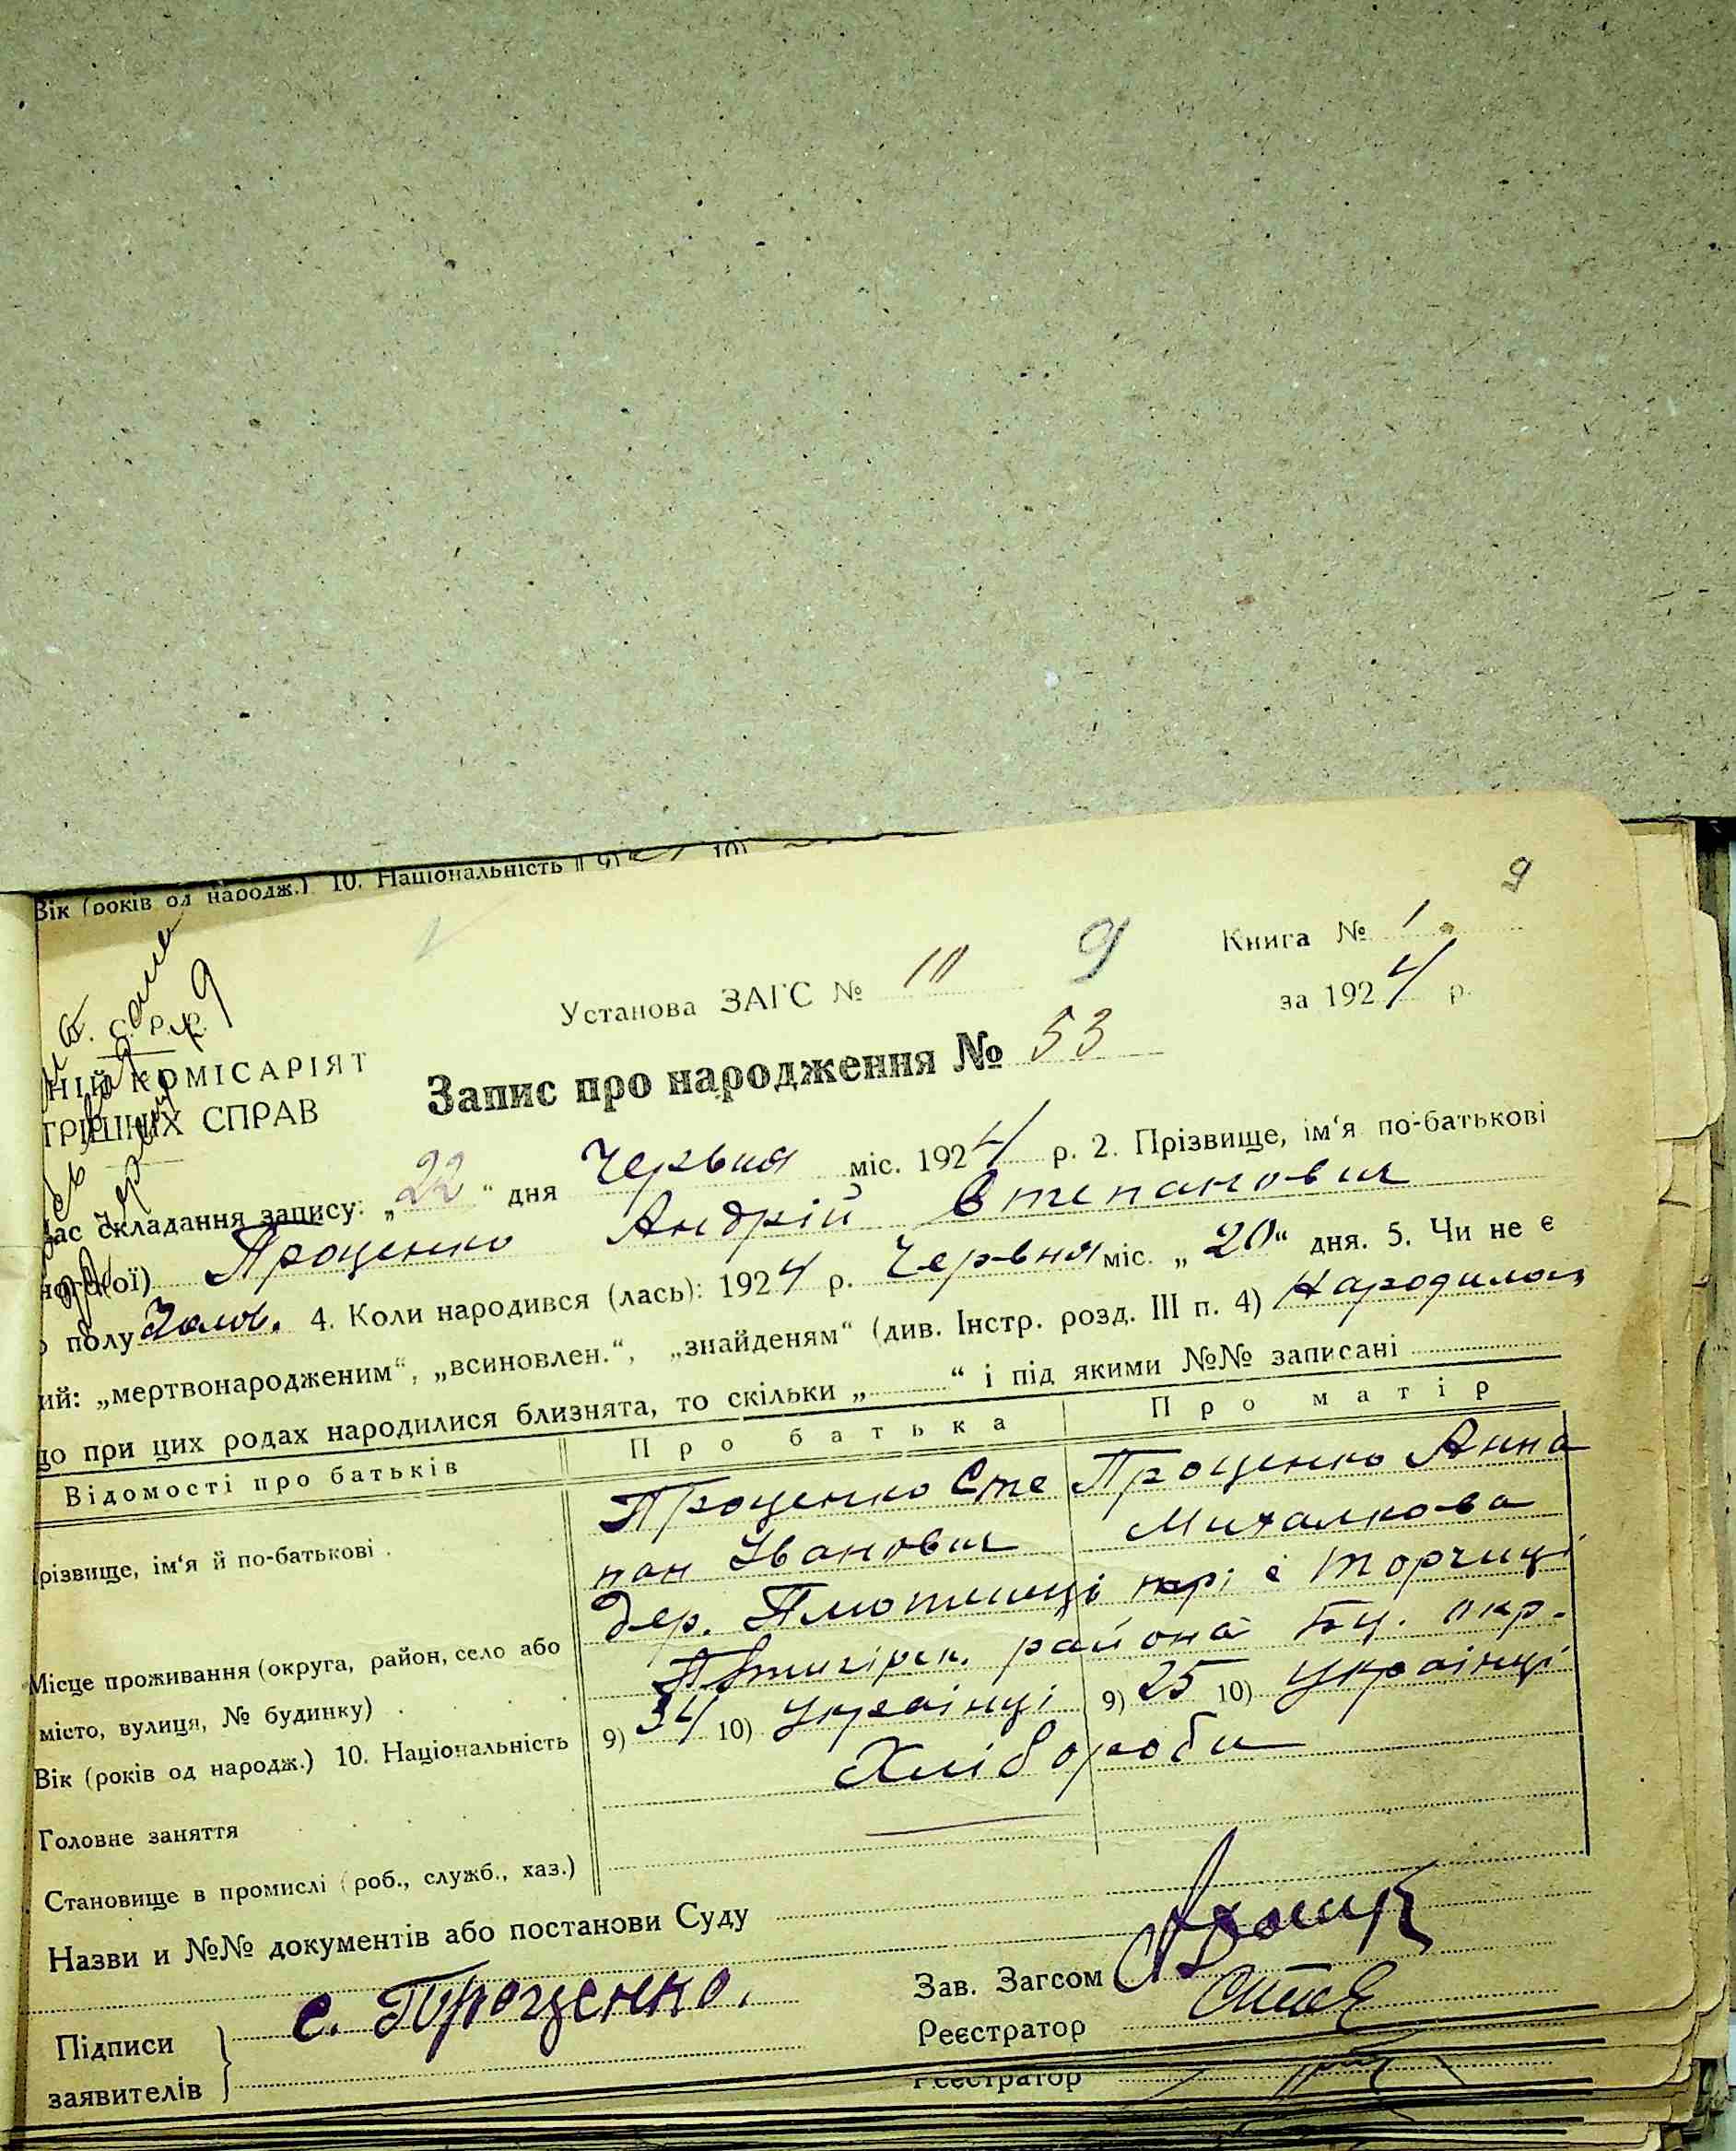 Вік (років од народж.) 10. Національність 9) 10)
9
Книга № 1
Установа ЗАГС № 10 9
за 1924 р.
С. Р. Р.
НИЙ КОМІСАРІЯТ
ТРІШНІХ СПРАВ
Запис про народження № 53
час складання запису: „22“ дня Червня міс. 1924 р. 2. Прізвище, ім‘я по-батькові
ного(ої) Проценко Андрій Степанович
полу Чолов. 4. Коли народився (лась): 1924 р. Червня міс. „20“ дня. 5. Чи не є
ий: „мертвонародженим“, „всиновлен.“, „знайденям“ (див. Інстр. розд. III п. 4)
до при цих родах народилися близнята, то скільки „ “ і під якими №№ записані
Відомості про батьків Про батька Про матір
різвище, ім‘я й по-батькові Проценко Сте Проценко Анна
пан Іванович Михалкова
Місце проживання (округа, район, село або дер. Плотниці при с Торчиці
місто, вулиця, № будинку) району Бц. окр.
Вік (років од народж.) 10. Національність 9) 34 10) Українці 9) 25 10) Українці
Головне заняття Хлібороби
Становище в промислі (роб., служб., хаз.)
Назви и №№ документів або постанови Суду
Зав. Загсом
Підписи с. Проценко.
Реєстратор
заявителів
Реєстратор